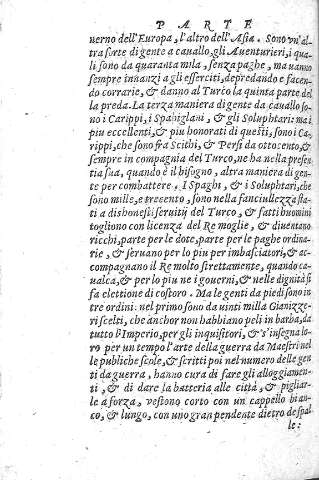 PARTE
uerno dell'Europa, l'altro dell'Asia. Sono vn'al-
tra sorte di gente a cauallo, gli Auenturieri, i qua-
li sono da quaranta mila, senza paghe, ma uanno
sempre innanzi a gli esserciti, depredando e facen-
do corrarie, & danno al Turco la quinta parte del
la preda. La terza maniera di gente da cauallo so-
no i Carippi, i Spahiglani, & gli Soluphtari: ma i
piu eccellenti, & piu honorati di questi, sono i Ca-
rippi, che sono fra Scithi, & Persi da ottocento, &
sempre in compagnia del Turco, ne ha nella presen
tia sua, quando è il bisogno, altra maniera di gen-
te per combattere. I Spaghi, & i Soluphtari, che
sono mille, e trecento, sono nella fanciullezza sta-
ti a dishonesti seruitij del Turco, & fatti huomini
togliono con licenza del Re moglie, & diuentano
ricchi, parte per le dote, parte per le paghe ordina-
rie, & seruano per lo piu per imbasciatori, & ac-
compagnano il Re molto strettamente, quando ca-
ualca, & per lo piu ne i gouerni, & nelle dignità si
fa elettione di costoro. Ma le genti da piedi sono in
tre ordini: nel primo sono da uinti mila Gianizze-
ri scelti, che anchor non habbiano peli in barba, da
tutto l'Imperio, per gli inquisitori, & s'insegna lo-
ro per un tempo l'arte della guerra da Maestri nel
le publiche scole, & scritti poi nel numero della gen
ti da guerra, hanno cura di fare gli alloggiamen-
ti, & di dare la batteria alle città, & pigliar-
le a forza, vestono corto con un cappello bian-
co, & lungo, con uno gran pendente dietro de spal
le: